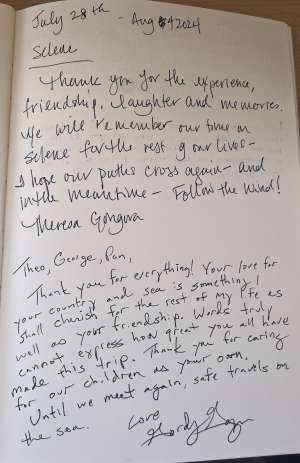 July 28th - Aug 4 2024
Selene
Thank you for the experience,
friendship, laughter and memories.
We will remember our time on
Selene for the rest of our lives -
I hope our paths cross again - and
in the meantime - Follow the Wind!
Theresa
Theo, George, Pan,
Thank you for everything! Your love for
your country and sea is something I
shall cherish for the rest of my life as
well as your friendship. Words truly
cannot express how great you all have
made this trip. Thank you for caring
for our children as your own.
Until we meet again, safe travels on
the sea.
Love,